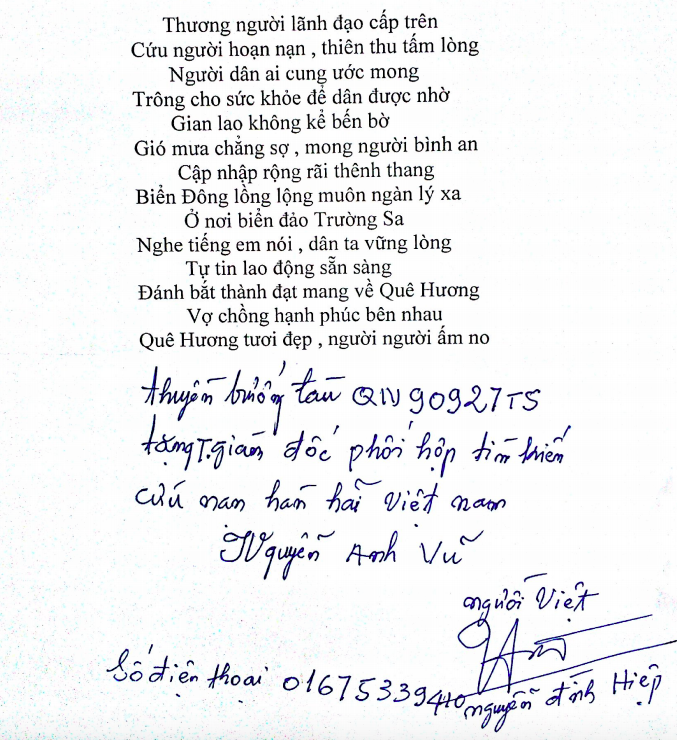 Thương người lãnh đạo cấp trên
Cứu người hoạn nạn , thiên thu tấm lòng
Người dân ai cung ước mong
Trông cho sức khỏe để dân được nhờ
Gian lao không kể bến bờ
Gió mưa chẳng sợ , mong người bình an
Cập nhập rộng rãi thênh thang
Biển Đông lồng lộng muôn ngàn lý xa
Ở nơi biển đảo Trường Sa
Nghe tiếng em nói , dân ta vững lòng
Tự tin lao động sẵn sàng
Đánh bắt thành đạt mang về Quê Hương
Vợ chồng hạnh phúc bên nhau
Quê Hương tươi đẹp , người người ấm no
thuyền trưởng tàu QN90927TS
tặng T.giám đốc phối hợp tìm kiến
cứu nan han hải Việt nam
Nguyễn Anh Vũ
người Viết
Số điện thoại 01675339410
nguyễn đình Hiệp